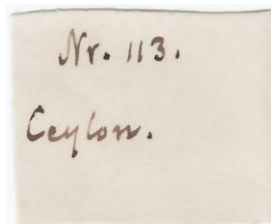 Nr. 113.
Ceylon.